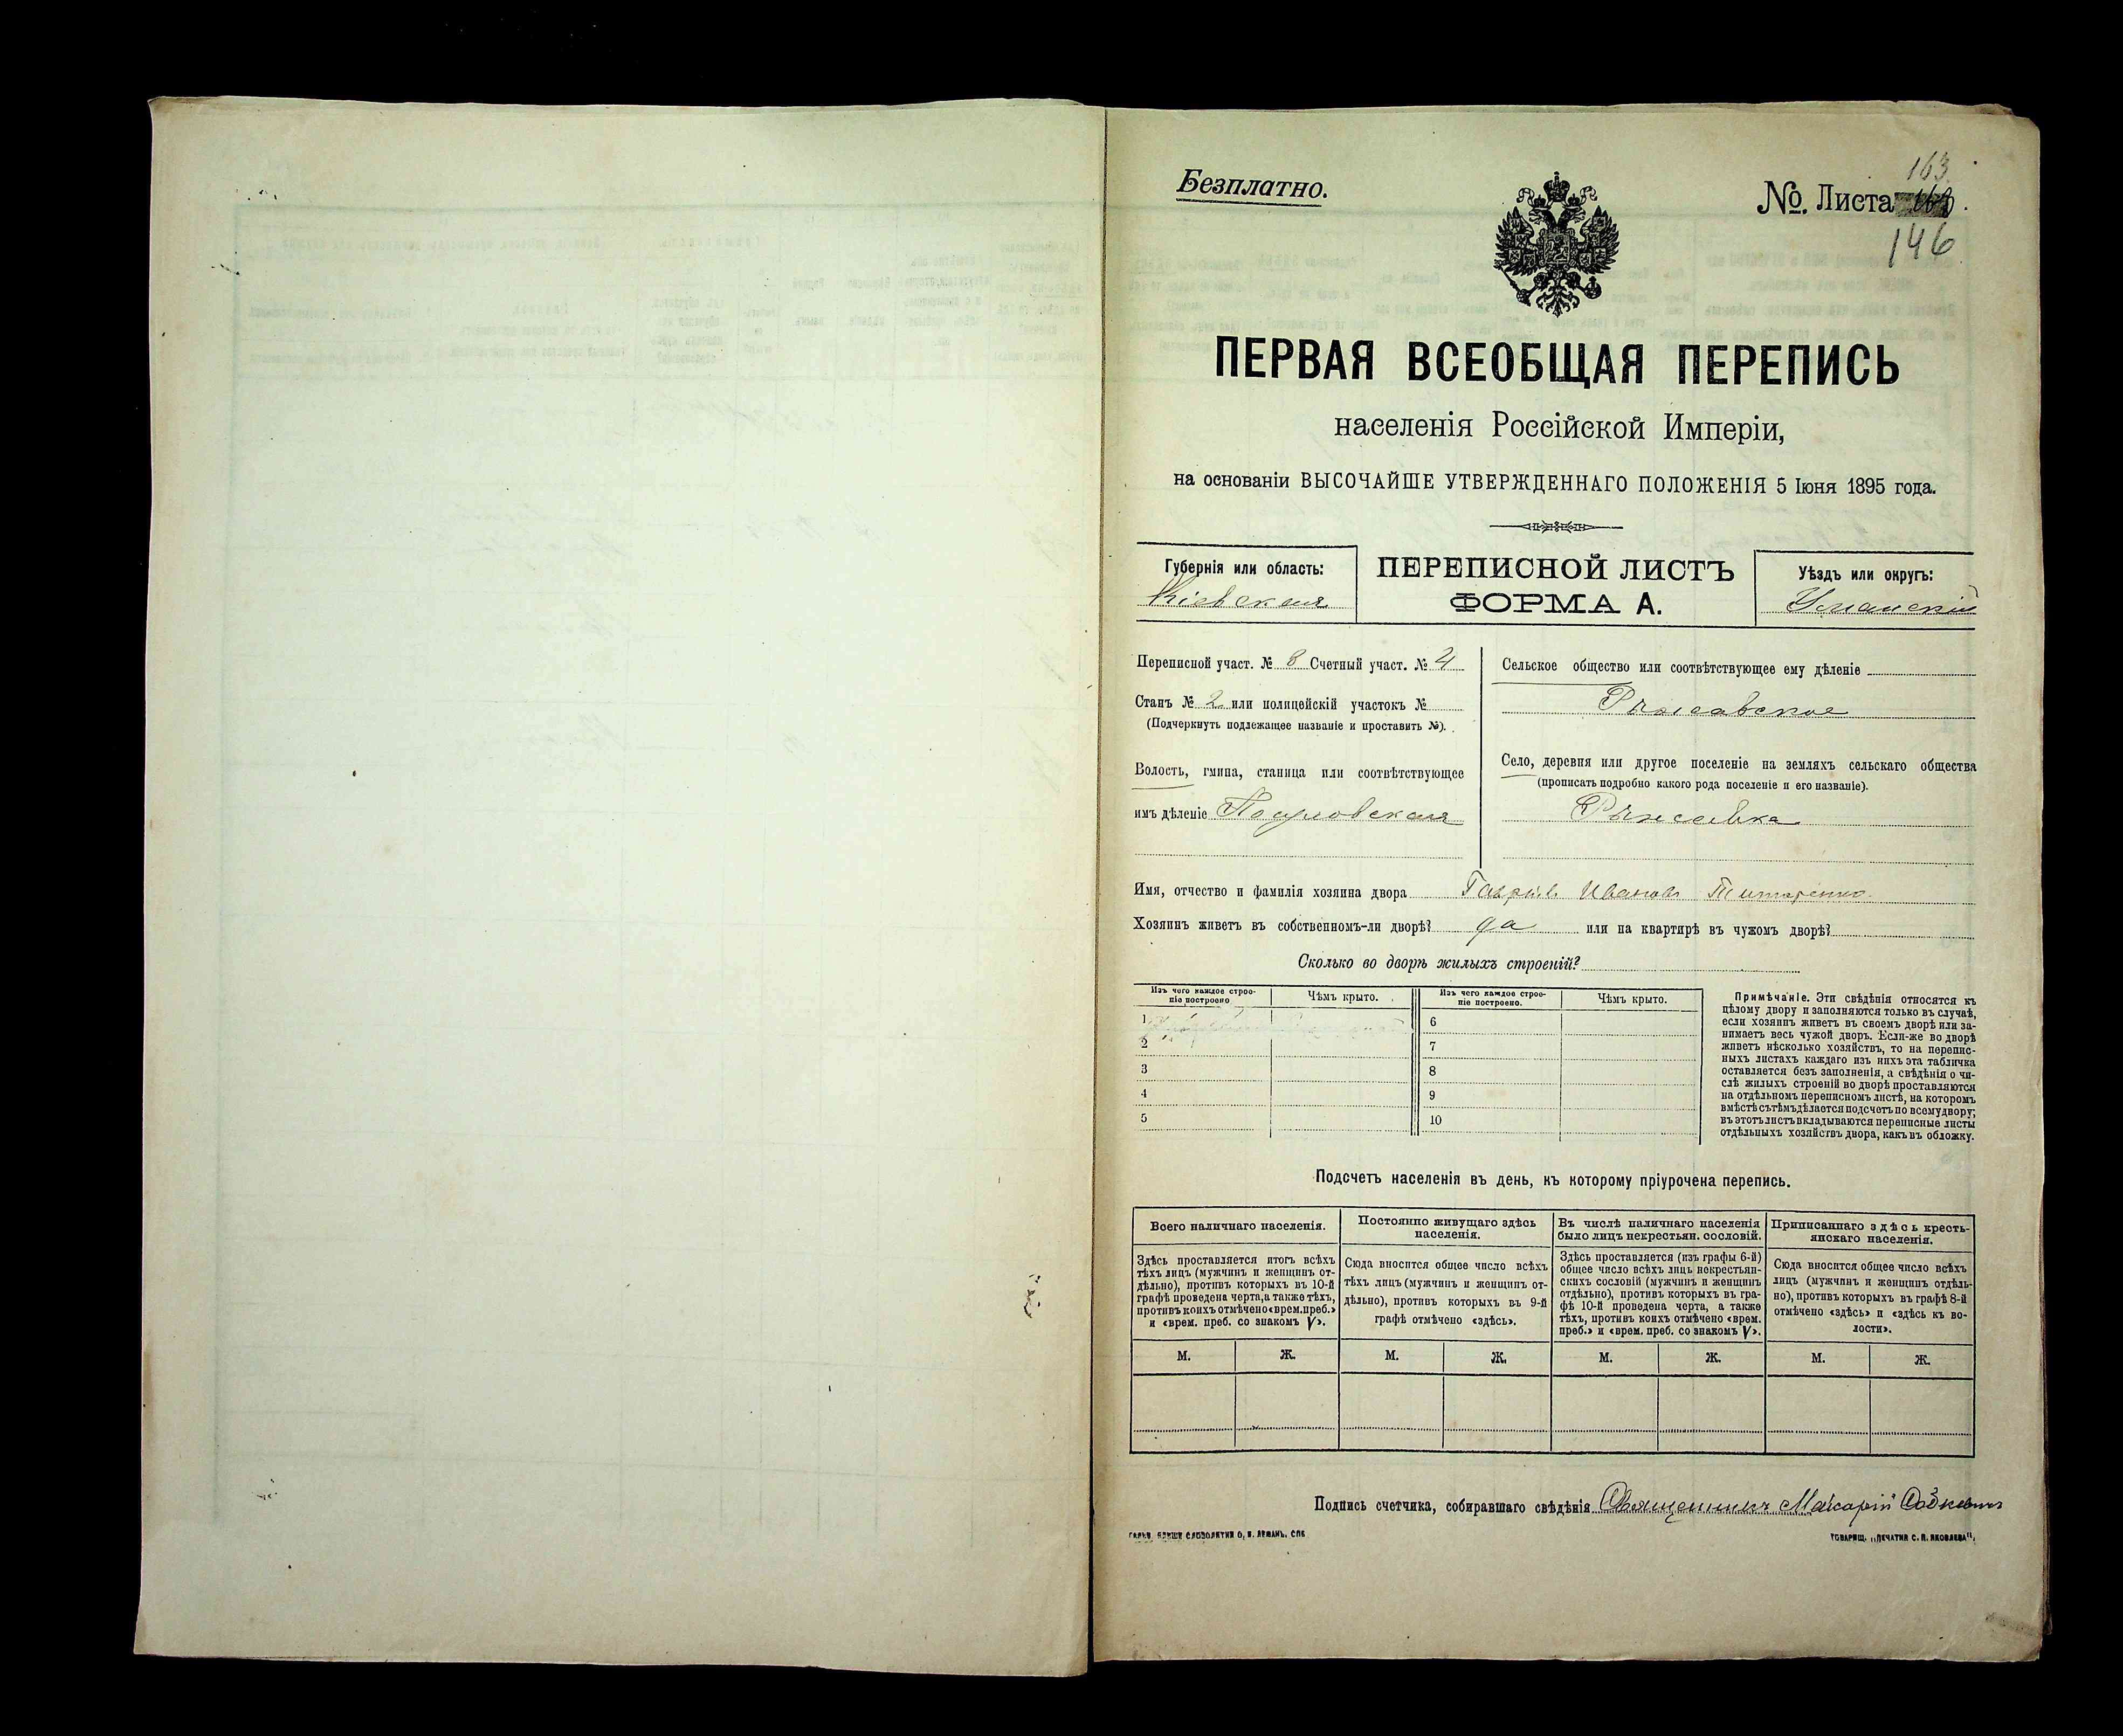 Безплатно.
163
№. Листа
146
ПЕРВАЯ ВСЕОБЩАЯ ПЕРЕПИСЬ
населенія Россійской Имперіи,
на основаніи ВЫСОЧАЙШЕ УТВЕРЖДЕННАГО ПОЛОЖЕНІЯ 5 Іюня 1895 года.
Губернія или область:
Кіевская
ПЕРЕПИСНОЙ ЛИСТЪ
ФОРМА А.
Уѣздъ или округъ:
Уманскій
Переписной участ. № 8 Счетный участ. № 4
Станъ № 2 или полицейскій участокъ №
(Подчеркнуть подлежащее названіе и проставить №).
Волость, гмина, станица или соотвѣтствующее
имъ дѣленіе
Сельское общество или соотвѣтствующее ему дѣленіе
Рыжавское
Село, деревня или другое поселеніе на земляхъ сельскаго общества
(прописать подробно какого рода поселеніе и его названіе).
Рыжавка
Имя, отчество и фамилія хозяина двора Гавріилъ Ивановъ Титаренко
Хозяинъ живетъ въ собственномъ-ли дворѣ? да или на квартирѣ въ чужомъ дворѣ?
Сколько во дворѣ жилыхъ строеній?
Изъ чего каждое строе-
ніе построено
Чѣмъ крыто.
Изъ чего каждое строе-
ніе построено.
Чѣмъ крыто.
1
2
3
4
5
6
7
8
9
10
Примѣчаніе. Эти свѣдѣнія относятся къ
цѣлому двору и заполняются только въ случаѣ,
если хозяинъ живетъ въ своемъ дворѣ или за-
нимаетъ весь чужой дворъ. Если-же во дворѣ
живетъ нѣсколько хозяйствъ, то на перепис-
ныхъ листахъ каждаго изъ нихъ эта табличка
оставляется безъ заполненія, а свѣдѣнія о чи-
слѣ жилыхъ строеній во дворѣ проставляются
на отдѣльномъ переписномъ листѣ, на которомъ
вмѣстѣ съ тѣмъ дѣлается подсчетъ по всему двору;
въ этотъ листъ вкладываются переписные листы
отдѣльныхъ хозяйствъ двора, какъ въ обложку.
Подсчетъ населенія въ день, къ которому пріурочена перепись.
Всего наличнаго населенія.
Здѣсь проставляется итогъ всѣхъ
тѣхъ лицъ (мужчинъ и женщинъ от-
дѣльно), противъ которыхъ въ 10-й
графѣ проведена черта, а также тѣхъ,
противъ коихъ отмѣчено «врем. преб.»
и «врем. преб. со знакомъ V».
Постоянно живущаго здѣсь
населенія.
Сюда вносится общее число всѣхъ
тѣхъ лицъ (мужчинъ и женщинъ от-
дѣльно), противъ которыхъ въ 9-й
графѣ отмѣчено «здѣсь».
Въ числѣ наличнаго населенія
было лицъ некрестьян. сословій.
Здѣсь проставляется (изъ графы 6-й)
общее число всѣхъ лицъ некрестьян-
скихъ сословій (мужчинъ и женщинъ
отдѣльно), противъ которыхъ въ гра-
фѣ 10-й проведена черта, а также
тѣхъ, противъ коихъ отмѣчено «врем.
преб.» и «врем. преб. со знакомъ V».
Приписаннаго здѣсь кресть-
янскаго населенія.
Сюда вносится общее число всѣхъ
лицъ (мужчинъ и женщинъ отдѣль-
но), противъ которыхъ въ графѣ 8-й
отмѣчено «здѣсь» и «здѣсь къ во-
лости».
М. Ж. М. Ж. М. Ж. М. Ж.
Подпись счетчика, собиравшаго свѣдѣнія Священникъ Макарій
ТОВАРИЩ. „ПЕЧАТНЯ С. П. ЯКОВЛЕВА“.